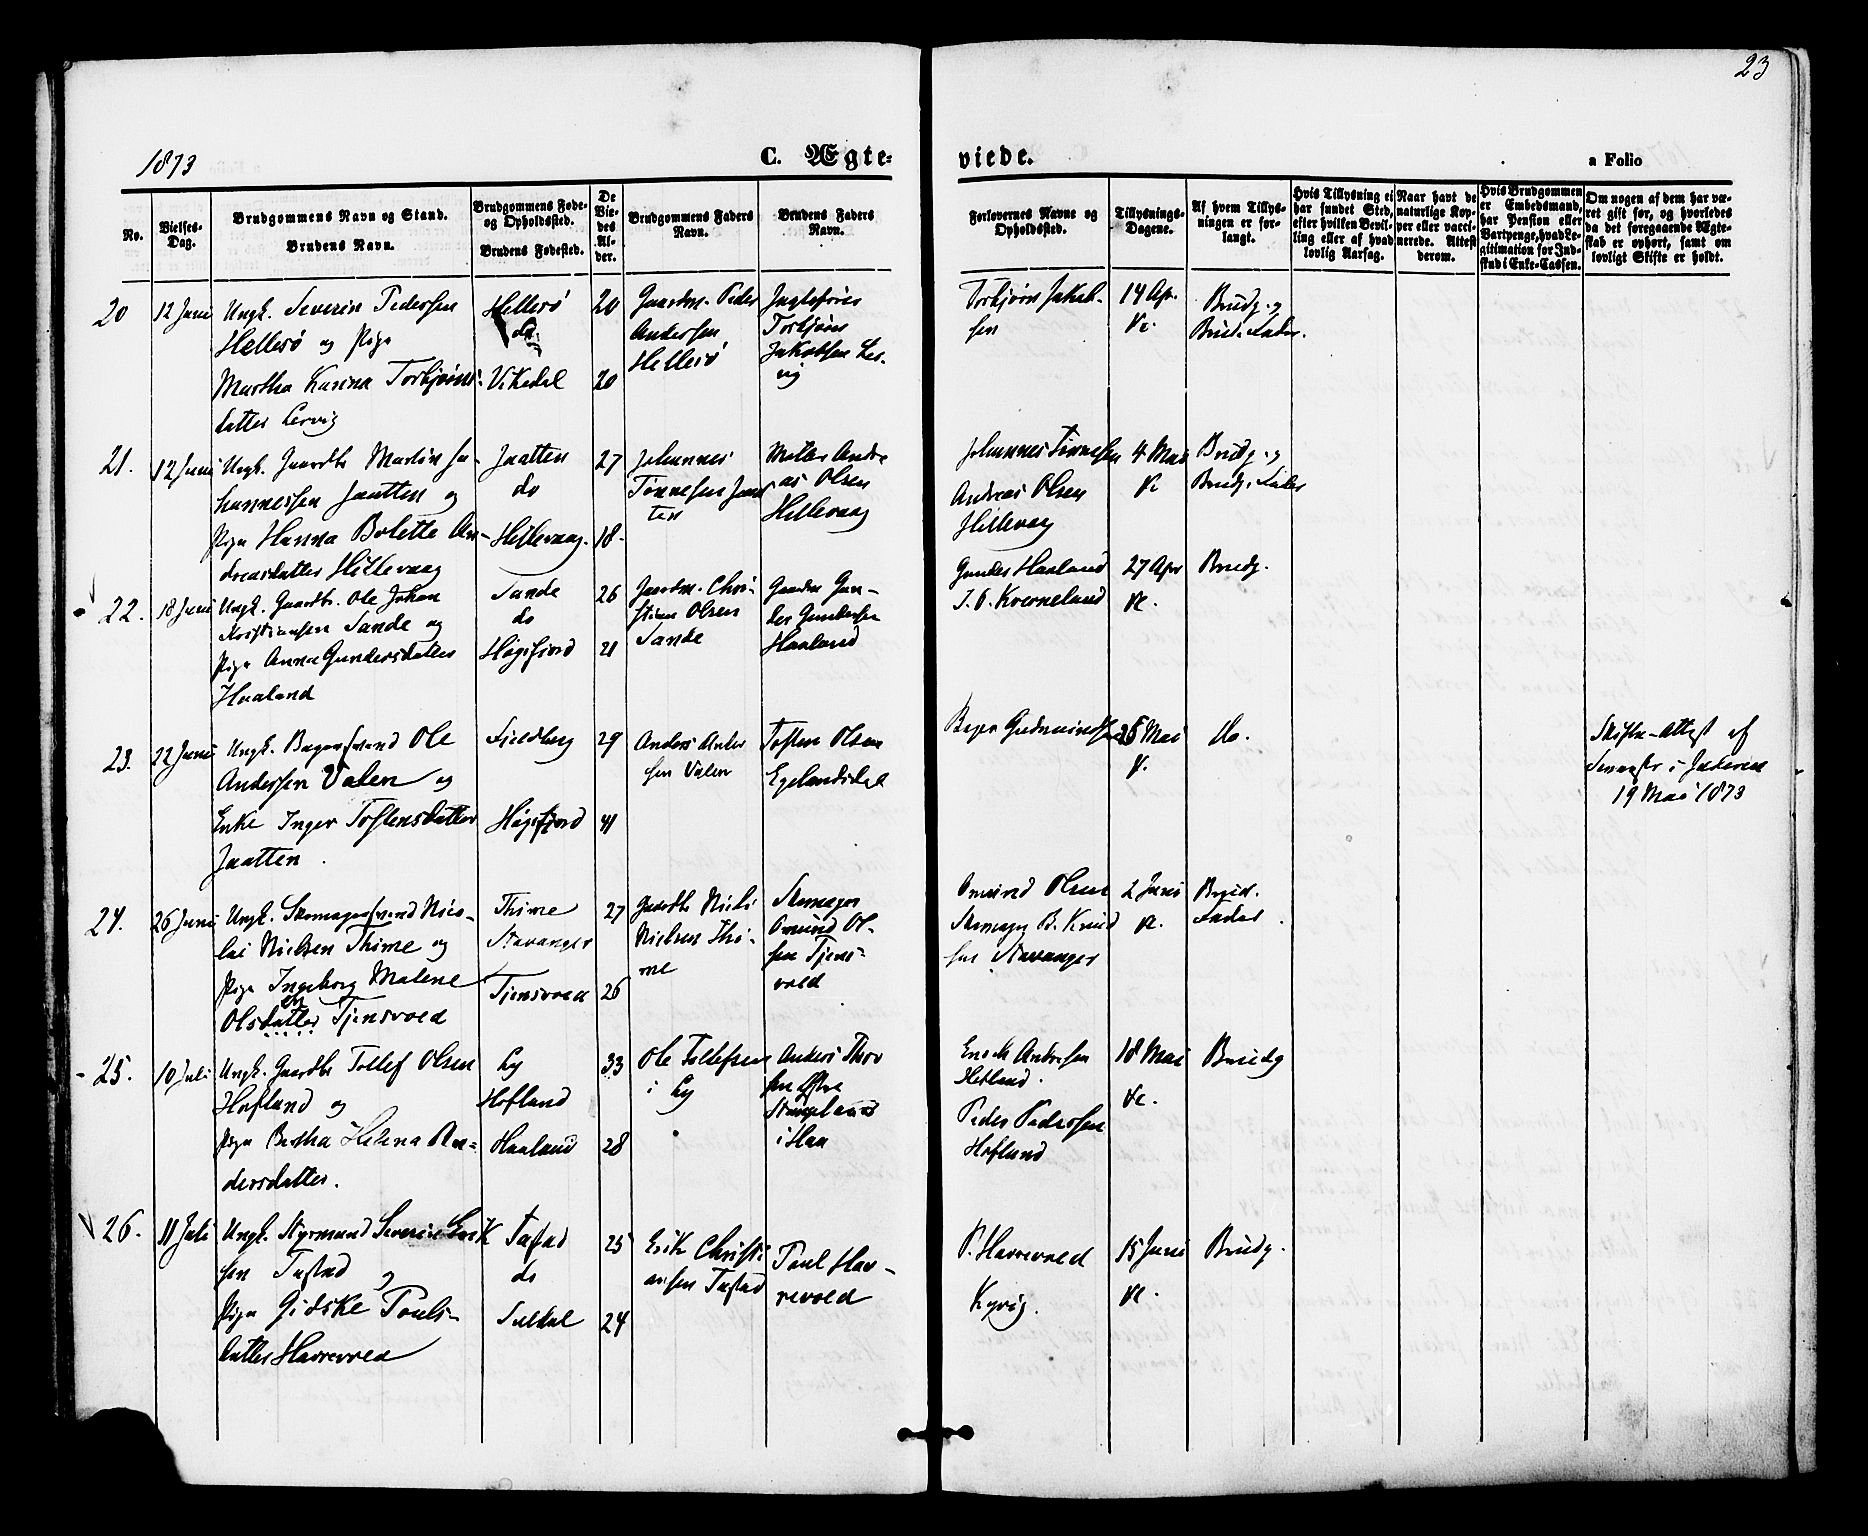 23
1873
C. Ægte-
viede.
a Folio
No.
Vielses-
Dag.
Brudgommens Navn og Stand.
Brudens Navn.
Brudgommens Føde-
og Opholdssted.
Brudens Fødested.
De
Vie-
des
Al-
der.
Brudgommens Faders
Navn.
Brudens Faders
Navn.
Forlovernes Navne og
Opholdssted.
Tillysnings-
Dagene.
Af hvem Tillys-
ningen er for-
langt.
Hvis Tillysning ei
har fundet Sted,
efter hvilken Bevil-
ling eller af hvad
lovlig Aarsag.
Naar havt de
naturlige Kop-
per eller vacci-
nerede. Attest
derom.
Hvis Brudgommen
er Embedsmand,
har Pension eller
Vartpenge, hvad Le-
gitimation for Ind-
skud i Enke-Cassen.
Om nogen af dem har væ-
ret gift før, og hvorledes
da det foregaaende Ægte-
skab er ophørt, samt om
lovligt Skifte er holdt.
20
12 Juni
Ungk. Severin Pedersen
Hellesø og Pige
Martha Karina Torbjørns-
datter Lervig
Hellesø
do.
Vikedal
20
20
Gaardm. Peder
Andersen
Hellesø
Torbjørn
Jakobsen Ler-
vig
Torbjørn Jakob-
sen
14 Apr.
Brudg. og
Brud. Fader.
21.
12 Juni
Ungk. Gaardbr. Martin Jo-
hannessen Jaatten og
Pige Hanna Bolette An-
dreasdatter Hillevaag
Jaatten
do
Hillevaag.
27
18.
Johannes
Tønnesen Jaat
ten
Møller Andre
as Olsen
Hillevaag
Johannes Tønnesen
Andreas Olsen
Hillevaag
4 Mai
Brudg. og
Brudg. Fader
22.
18 Juni
Ungk. Gaardbr. Ole Johan
Kristiansen Sande og
Pige Anna Gundersdatter
Haaland
Sande
do
Høgsfjord
26
21
Gaardm. Chri-
stian Olsen
Sande
Gaardm Gun-
der Gundersen
Haaland
Gunder Haaland
T. O. Kverneland
27 Apr
Brudg.
23.
22 Juni
Ungk. Bagersvend Ole
Andersen Valen og
Enke Inger Tostensdatter
Jaatten.
Fjeldberg
Høgsfjord
29
41
Anders Ander
sen Valen
Tosten Olsen
Egelandsdal
Bager Gudmundsen
25 Mai
do.
Skifte-Attest af
Sorenskr. i Jæderen
19 Mai 1873
24.
26 Juni
Ungk. Skomagersvend Nico-
lai Nielsen Thime og
Pige Ingeborg Malene
Olsdatter Tjensvold
Thime
Stavanger
Tjensvold
27
26
Gaardbr Niels
Nielsen Thi-
me
Skomager
Omund Ol-
sen Tjens-
vold
Omund Olsen
Skomager B. Knud
sen Stavanger
2 Juni
Brud.
Fader.
25.
10 Juli
Ungk. Gaardbr Tollef Olsen
Hofland og
Pige Bertha Helena An-
dersdatter.
Ly
Hofland
Haaland
33
28
Ole Tollefsen
i Ly
Anders Thor
sen Østre
Stangeland
i Haa
Enok Andersen
Hetland.
Peder Pedersen
Hofland
18 Mai
Brudg
26.
11 Juli
Ungk. Styrmand Severin Erik
sen Tastad og
Pige Gidske Pouls-
datter Havrevold
Tastad
do
Suldal
25
24
Erik Christi
ansen Tastad
Poul Hav-
revold
P. Havrevold
Kyvig.
15 Juni
Brudg.